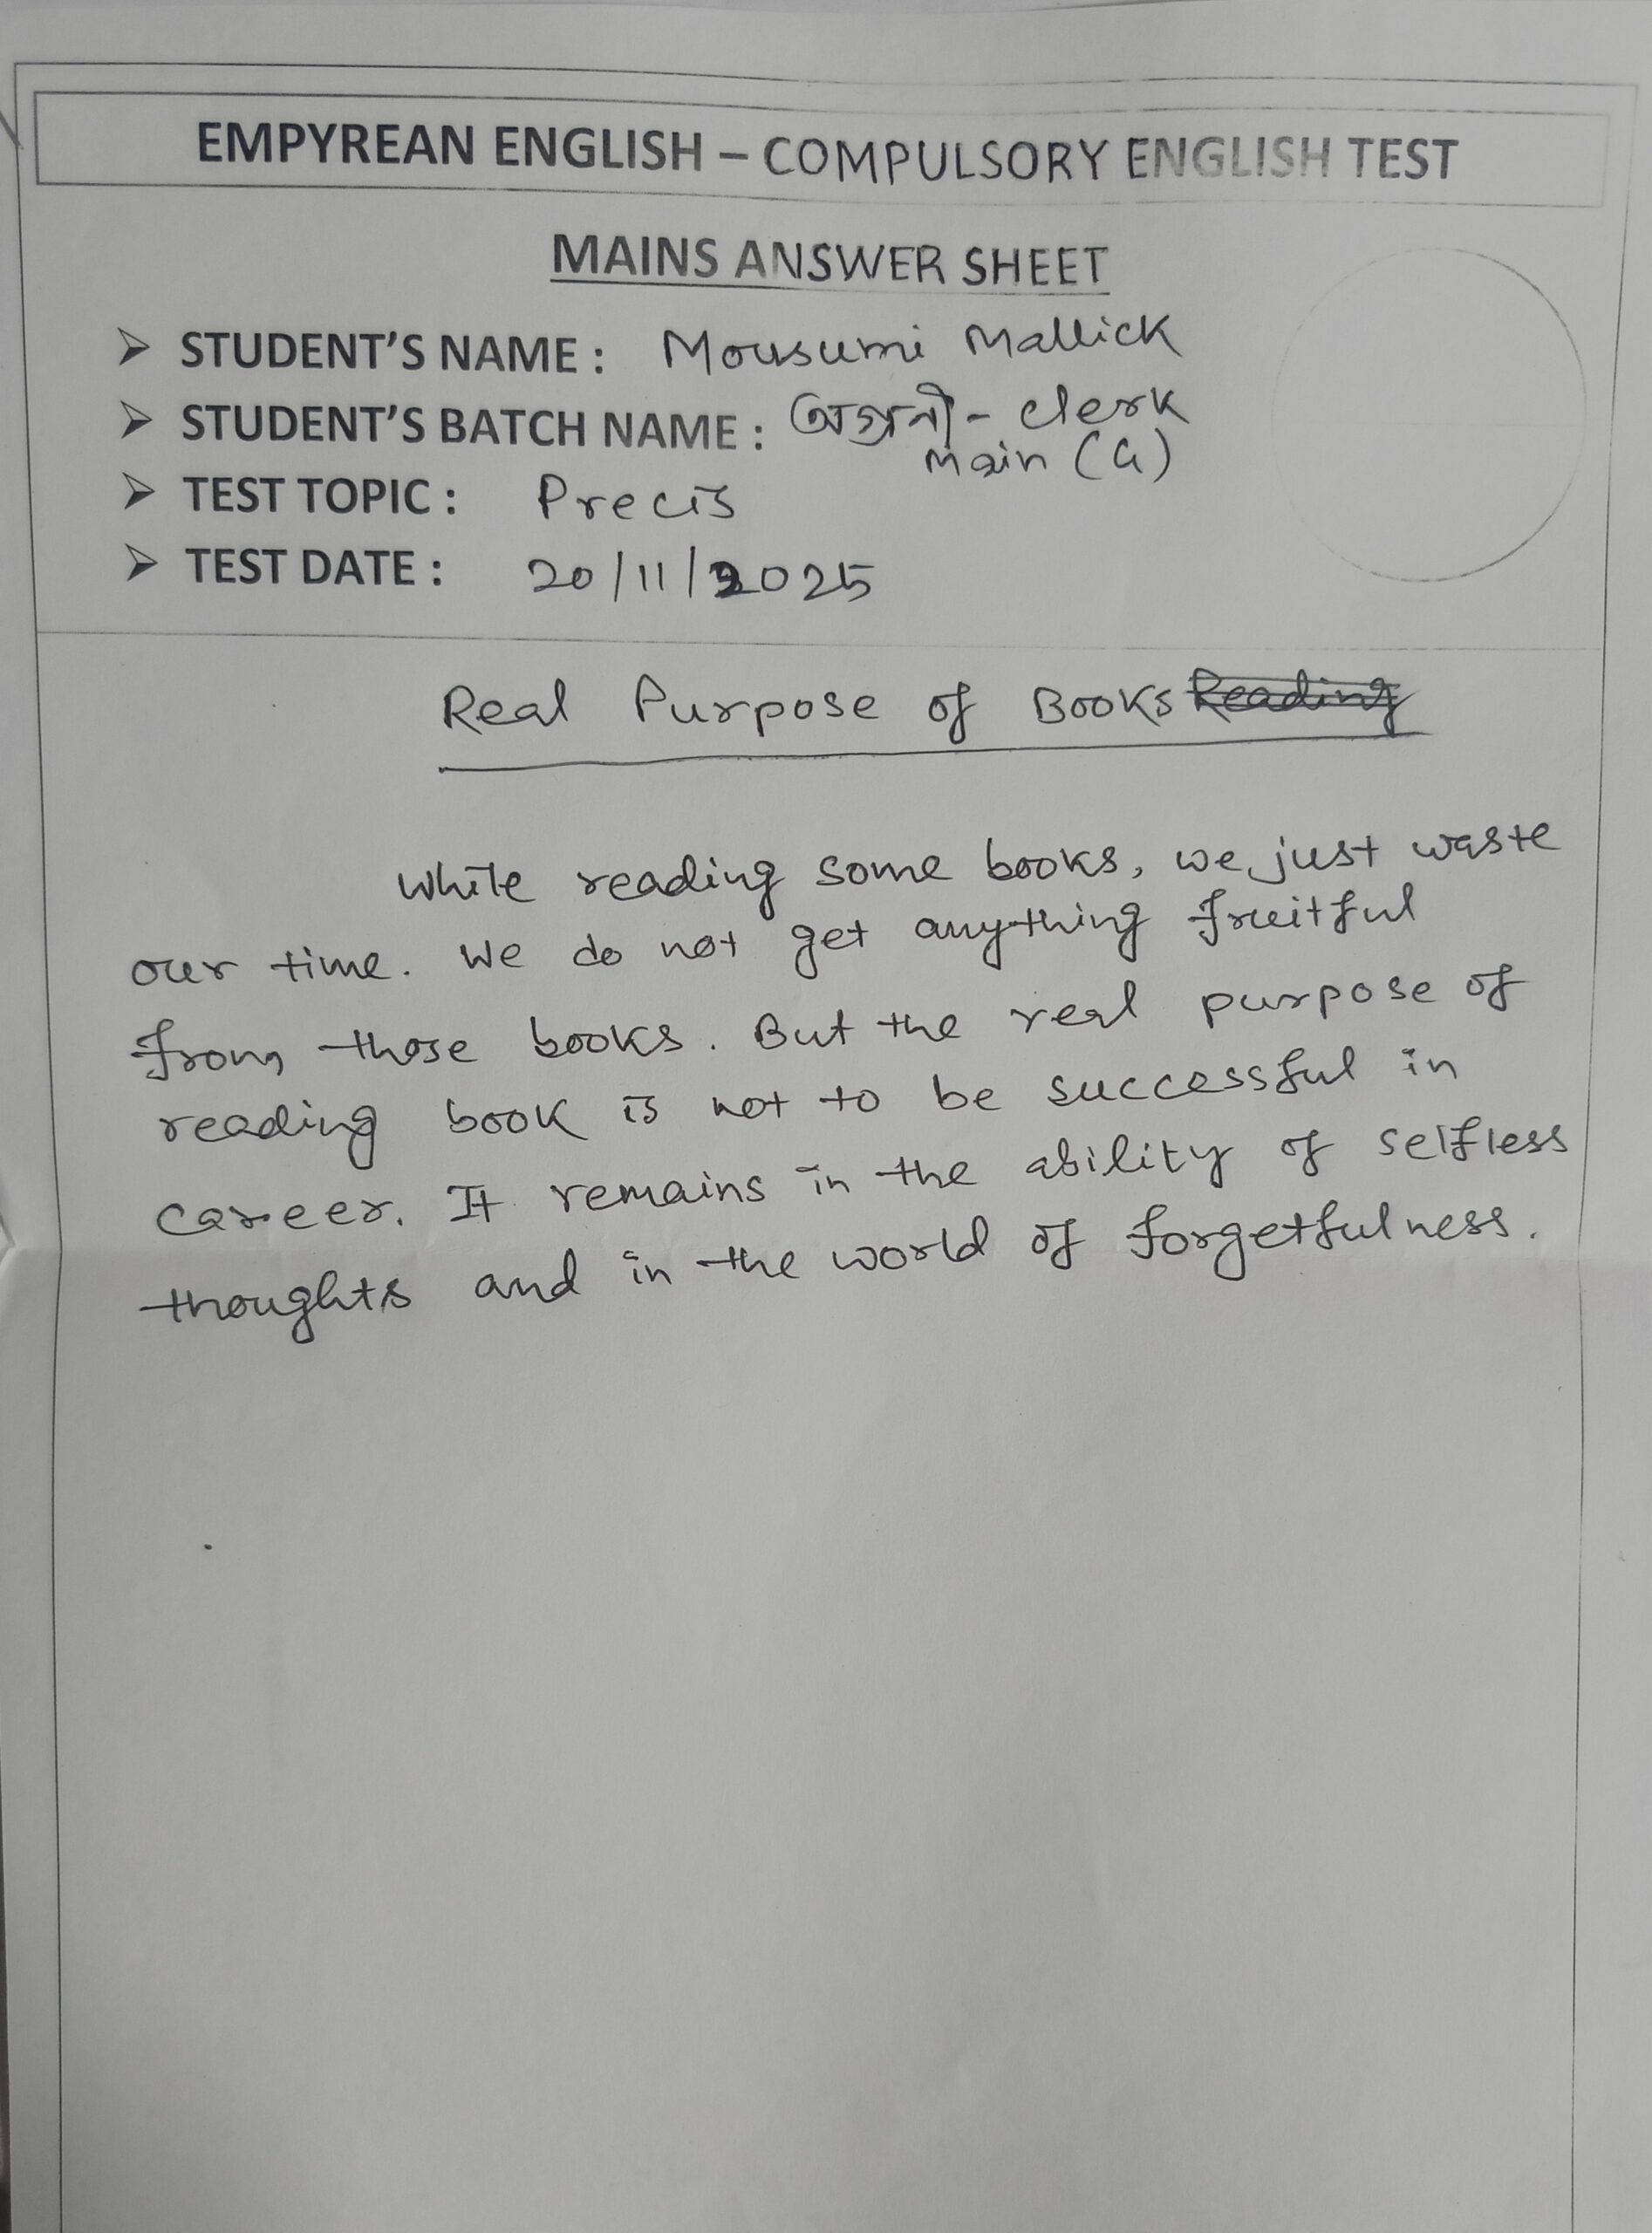 EMPYREAN ENGLISH – COMPULSORY ENGLISH TEST
MAINS ANSWER SHEET
➢ STUDENT'S NAME : Mousumi Mallick
➢ STUDENT'S BATCH NAME : অগ্রনী - Clerk
Main (G)
➢ TEST TOPIC : Precis
➢ TEST DATE : 20/11/2025
Real Purpose of Books Reading
While reading some books, we just waste
our time. We do not get anything fruitful
from those books. But the real purpose of
reading book is not to be successful in
career. It remains in the ability of selfless
thoughts and in the world of forgetfulness.